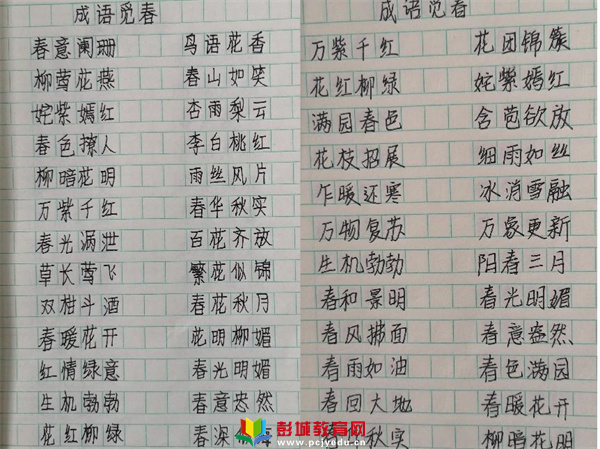 成语觅春
春意阑珊 鸟语花香
柳莺花燕 春山如笑
姹紫嫣红 杏雨梨云
春色撩人 李白桃红
柳暗花明 雨丝风片
万紫千红 春华秋实
春光漏泄 百花齐放
草长莺飞 繁花似锦
双柑斗酒 春花秋月
春暖花开 花明柳媚
红情绿意 春光明媚
生机勃勃 春意盎然
花红柳绿 春深
成语觅春
万紫千红 花团锦簇
花红柳绿 姹紫嫣红
满园春色 含苞欲放
花枝招展 细雨如丝
乍暖还寒 冰消雪融
万物复苏 万象更新
生机勃勃 阳春三月
春和景明 春光明媚
春风拂面 春意盎然
春雨如油 春色满园
春回大地 春暖花开
秋实 柳暗花明
彭城教育网
www.pcjyedu.cn